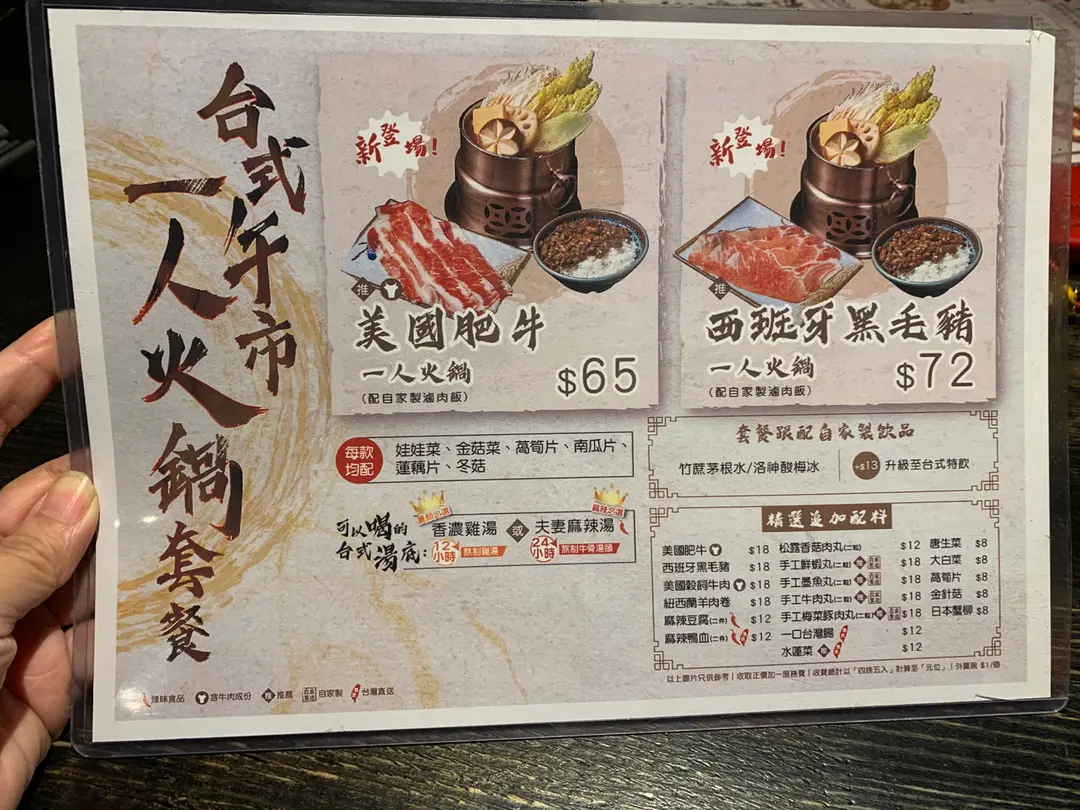 台式午市
一人火鍋套餐
新登場!
推
美國肥牛
一人火鍋
$65
(配自家製滷肉飯)
新登場!
推
西班牙黑毛豬
一人火鍋
$72
(配自家製滷肉飯)
每款
均配
娃娃菜、金菇菜、萵筍片、南瓜片、
蓮藕片、冬菇
可以喝的
台式湯底:
香濃雞湯 或 夫妻麻辣湯
12小時 熬制雞湯
24小時 熬制牛骨湯頭
套餐跟配自家製飲品
竹蔗茅根水/洛神酸梅冰
+$13 升級至台式特飲
精選追加配料
美國肥牛 $18
西班牙黑毛豬 $18
美國穀飼牛肉 $18
紐西蘭羊肉卷 $18
麻辣豆腐(二件) $12
麻辣鴨血(二件) $12
松露香菇肉丸(二粒) $12
手工鮮蝦丸(二粒) 推 $18
手工墨魚丸(二粒) 推 $18
手工牛肉丸(二粒) 推 $18
手工梅菜豚肉丸(二粒) 推 $18
一口台灣腸 $12
水蓮菜 推 $12
唐生菜 $8
大白菜 $8
萵筍片 $8
金針菇 $8
日本蟹柳 $8
以上圖片只供參考 | 收取正價加一服務費 | 收費總計以「四捨五入」計算至「元位」 | 外賣碗 $1/個
辣味食品 含牛肉成份 推 推薦 自家製 台灣直送